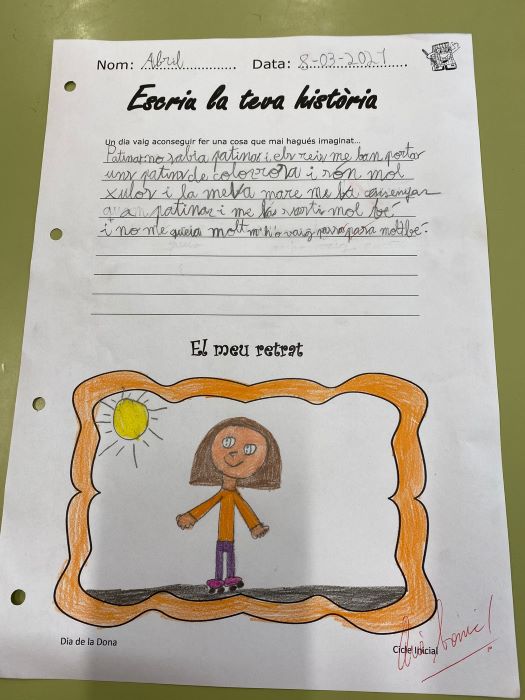 Nom: Abril Data: 8-03-2021
Escriu la teva història
Un dia vaig aconseguir fer una cosa que mai hagués imaginat...
Patinar no sabia patinar i els reis me ban portar
uns patins de color rosa i són mol
xulos i la meva mare me ba ensenyar
patinar i me ba surti mol bé
i no me queia molt m'ho vaig passa molt bé.
El meu retrat
Dia de la Dona
Cicle Inicial
Què bonic!